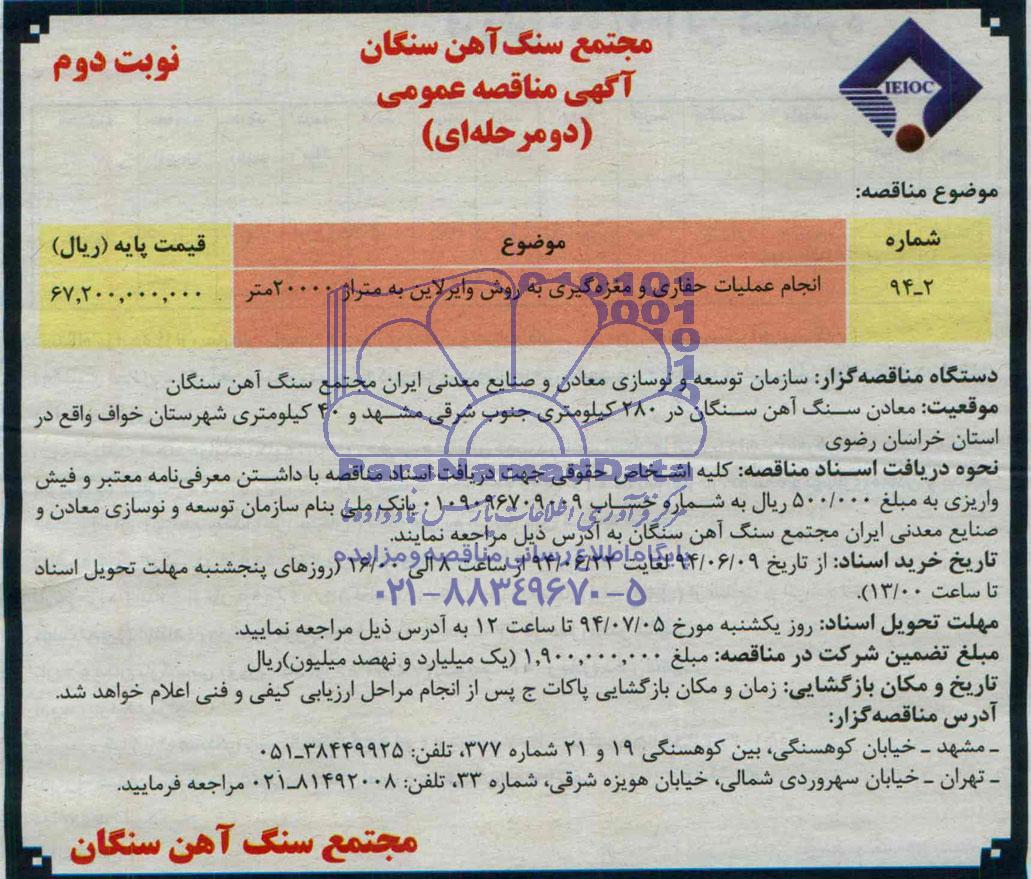 IEIOC
مجتمع سنگ آهن سنگان
نوبت دوم
آگهی مناقصه عمومی
(دومرحله‌ای)
موضوع مناقصه:
شماره موضوع قیمت پایه (ریال)
۹۴-۲ انجام عملیات حفاری و مغزه‌گیری به روش وایرلاین به متراژ ۲۰۰۰۰متر ۶۷,۲۰۰,۰۰۰,۰۰۰
دستگاه مناقصه‌گزار: سازمان توسعه و نوسازی معادن و صنایع معدنی ایران مجتمع سنگ آهن سنگان
موقعیت: معادن سنگ آهن سنگان در ۲۸۰ کیلومتری جنوب شرقی مشهد و ۴۰ کیلومتری شهرستان خواف واقع در
استان خراسان رضوی
نحوه دریافت اسناد مناقصه: کلیه اشخاص حقوقی جهت دریافت اسناد مناقصه با داشتن معرفی‌نامه معتبر و فیش
واریزی به مبلغ ۵۰۰/۰۰۰ ریال به شماره حساب بانک ملی بنام سازمان توسعه و نوسازی معادن و
صنایع معدنی ایران مجتمع سنگ آهن سنگان به آدرس ذیل مراجعه نمایند.
تاریخ خرید اسناد: از تاریخ ۹۴/۰۶/۰۹ لغایت از ساعت ۸ الی ۱۶/۰۰ (روزهای پنجشنبه مهلت تحویل اسناد
تا ساعت ۱۳/۰۰).
مهلت تحویل اسناد: روز یکشنبه مورخ ۹۴/۰۷/۰۵ تا ساعت ۱۲ به آدرس ذیل مراجعه نمایید.
مبلغ تضمین شرکت در مناقصه: مبلغ ۱,۹۰۰,۰۰۰,۰۰۰ (یک میلیارد و نهصد میلیون)ریال
تاریخ و مکان بازگشایی: زمان و مکان بازگشایی پاکات ج پس از انجام مراحل ارزیابی کیفی و فنی اعلام خواهد شد.
آدرس مناقصه‌گزار:
ـ مشهد ـ خیابان کوهسنگی، بین کوهسنگی ۱۹ و ۲۱ شماره ۳۷۷، تلفن: ۳۸۴۴۹۹۲۵ـ۰۵۱
ـ تهران ـ خیابان سهروردی شمالی، خیابان هویزه شرقی، شماره ۳۳، تلفن: ۸۱۴۹۲۰۰۸ـ۰۲۱ مراجعه فرمایید.
مجتمع سنگ آهن سنگان
پایگاه اطلاع رسانی مناقصه و مزایده
۰۲۱-۸۸۳۴۹۶۷۰-۵